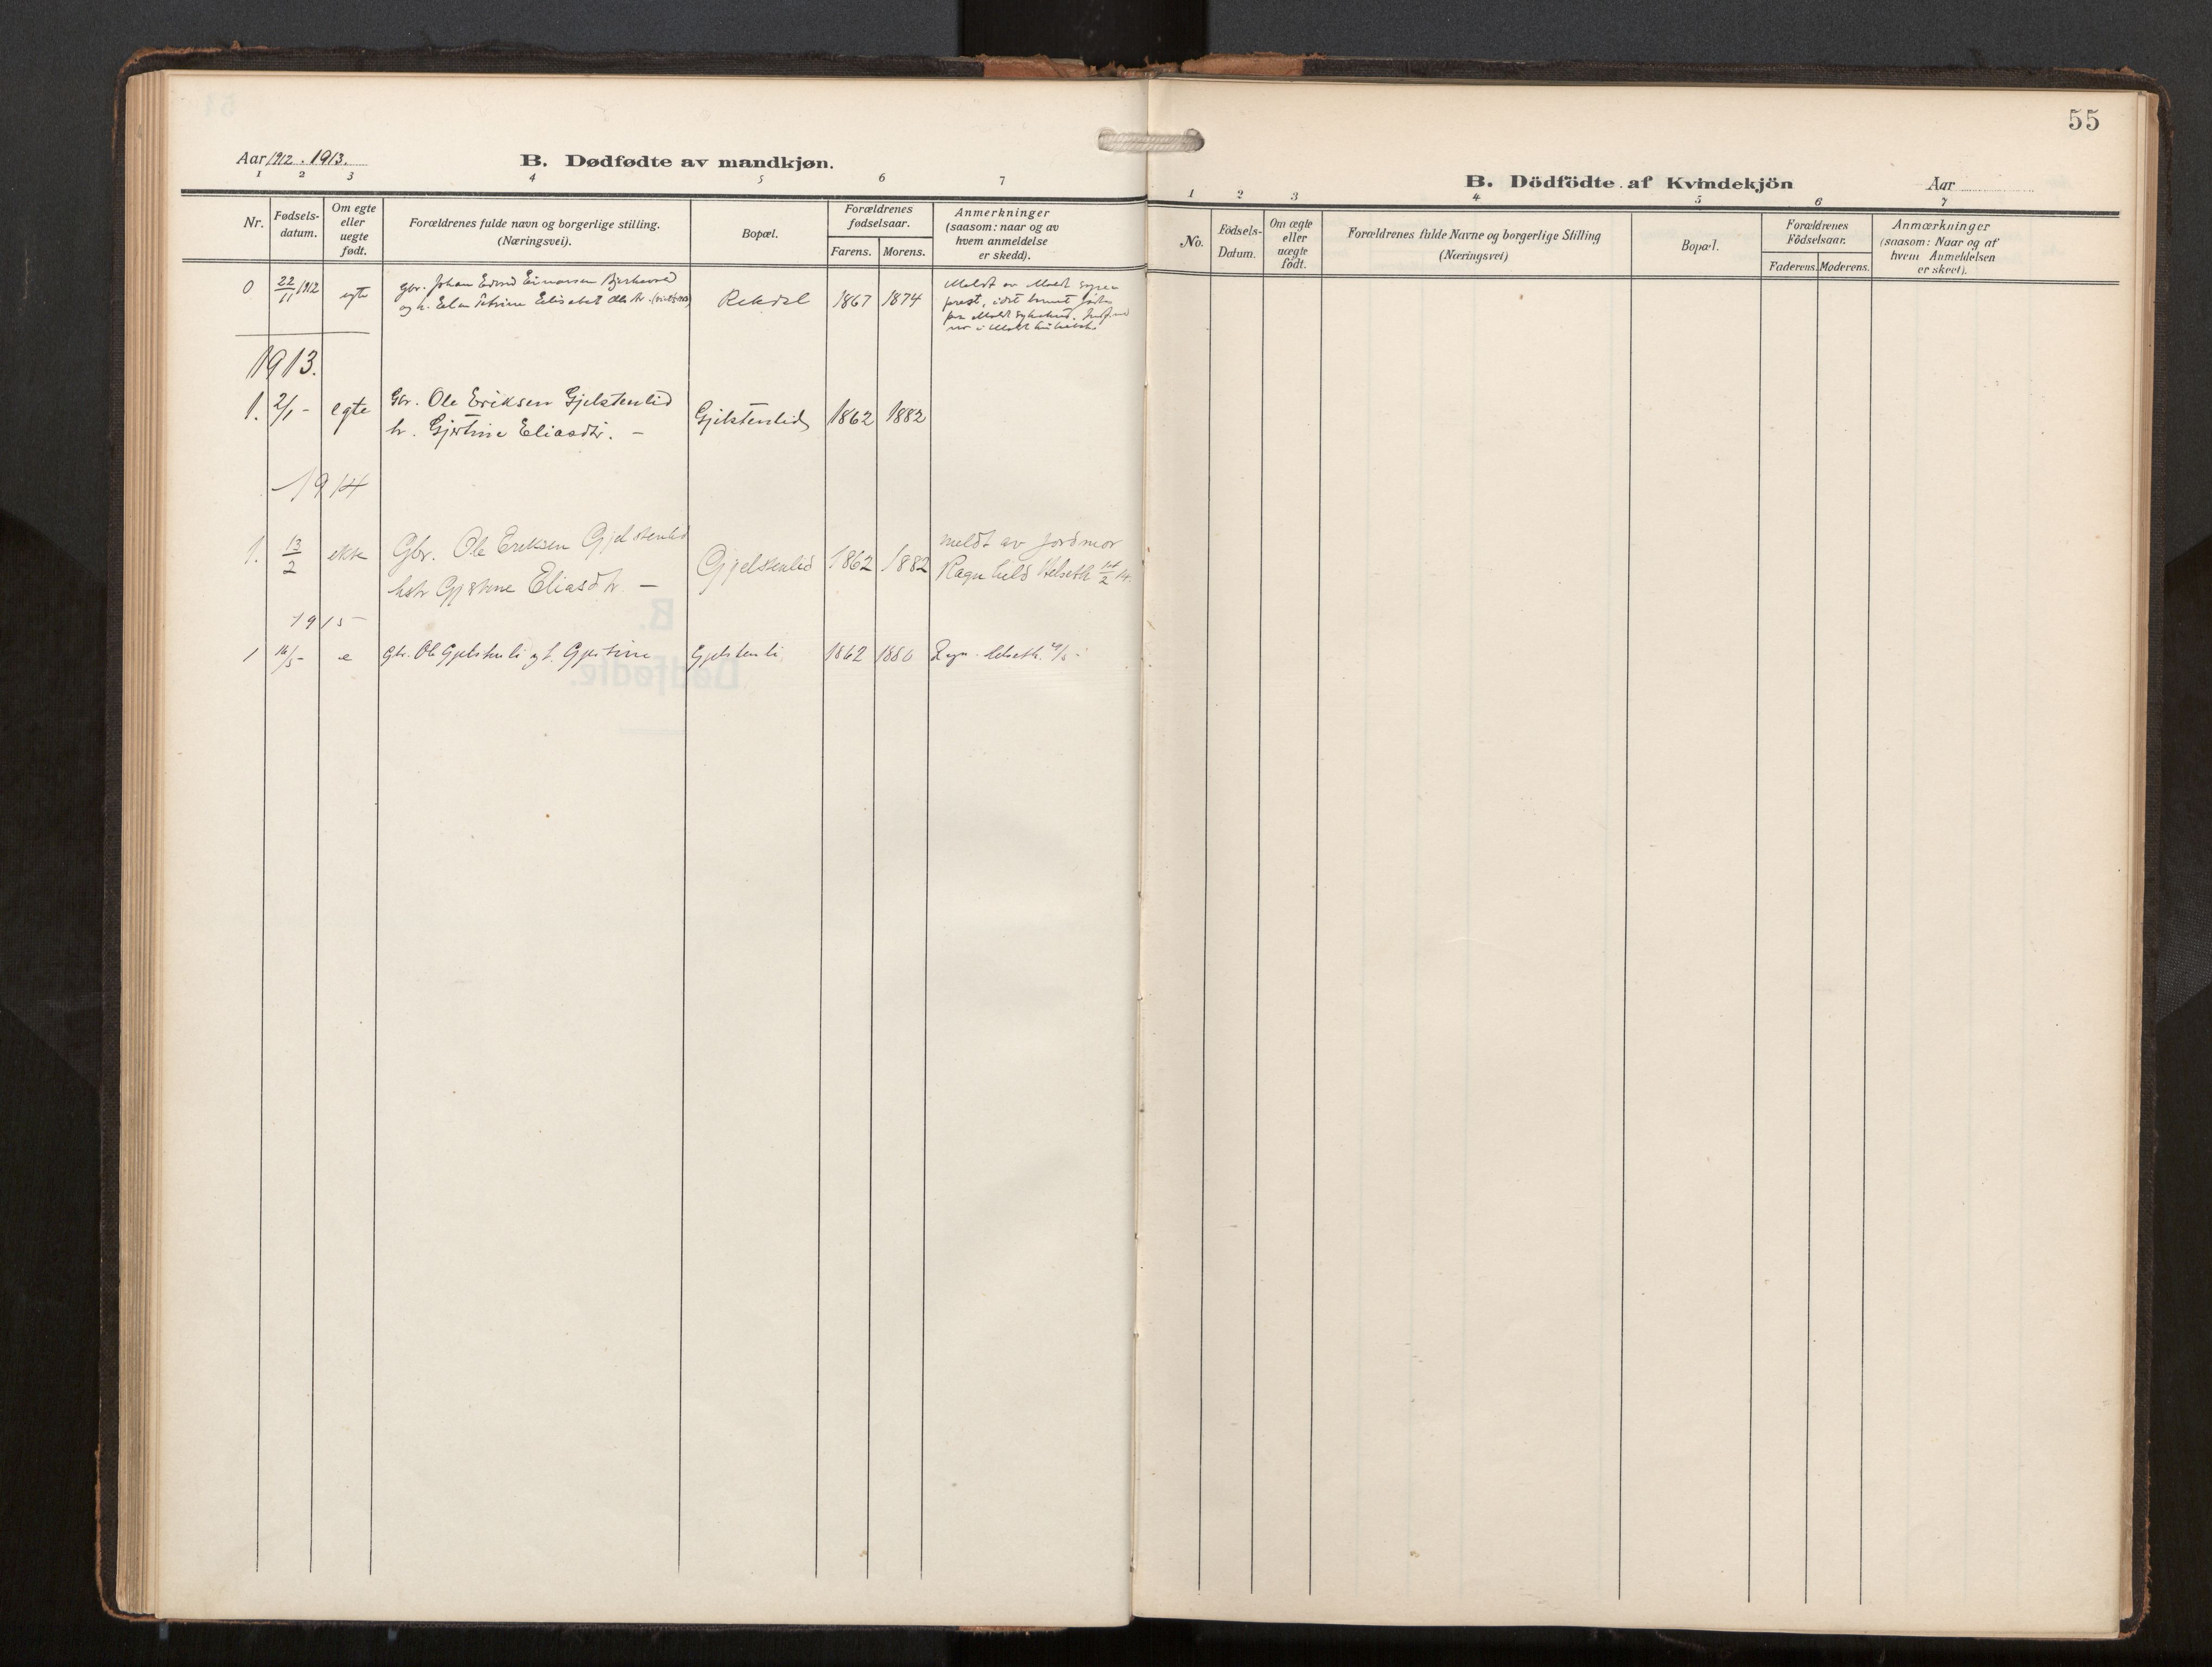 Aar 1912. 1913.
B. Dødfødte av mandkjøn.
1 2 3 4 5 6 7
Nr.
Fødsels-
datum.
Om egte
eller
uegte
født.
Forældrenes fulde navn og borgerlige stilling.
(Næringsvei).
Bopæl.
Forældrenes
fødselsaar.
Farens. Morens.
Anmerkninger
(saasom: naar og av
hvem anmeldelse
er skedd).
0 22/11 1912 egte
gbr. Johan Edvard Einarsen
og h. Elen Petrine Elisabet
Rekdal 1867 1874
Meldt av
1913.
1. 2/1 - egte
Gbr. Ole Eriksen Gjelstenlid
h. Gjertine Eliasdtr. -
Gjelstenlid 1862 1882
1914
1. 13/2 ekte
Gbr. Ole Eriksen Gjelstenlid
hstr Gjertine Eliasdtr -
Gjelstenlid 1862 1882
meldt av Jordmor
Ragnhild Helseth 14/2 14.
1915
1 16/5 - e gbr. Ole Gjelstenli og h. Gjertine Gjelstenli 1862 1880 Ragn. Helseth.
55
B. Dödfödte af Kvindekjön
Aar
1 2 3 4 5 6 7
No.
Födsels-
Datum.
Om ægte
eller
uægte
födt.
Forældrenes fulde Navne og borgerlige Stilling
(Næringsvei)
Bopæl.
Forældrenes
Födselsaar.
Faderens. Moderens.
Anmærkninger
(saasom: Naar og af
hvem Anmeldelsen
er skeet).
B.
Dødfødte.